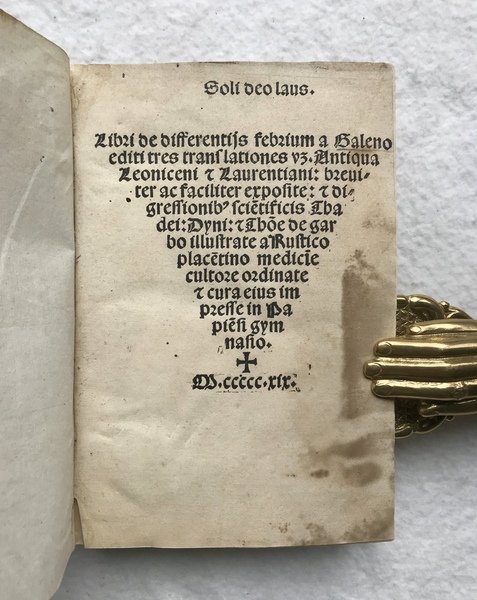 Soli deo laus.
Libri de differentijs febrium a Galeno
editi tres translationes vꝫ. Antiqua
Leoniceni ⁊ Laurentiani: breui-
ter ac faciliter exposite: ⁊ di-
gressionibꝰ sciẽtificis Tha
dei: Dyni: ⁊ Thõe de gar
bo illustrate a Rustico
placẽtino medicĩe
cultore ordinate
⁊ cura eius im
presse in Pa
piẽsi gym
nasio.
✠
M.ccccc.xix.